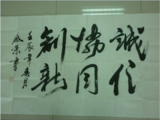 誠信
協同
創新
壬辰年春月